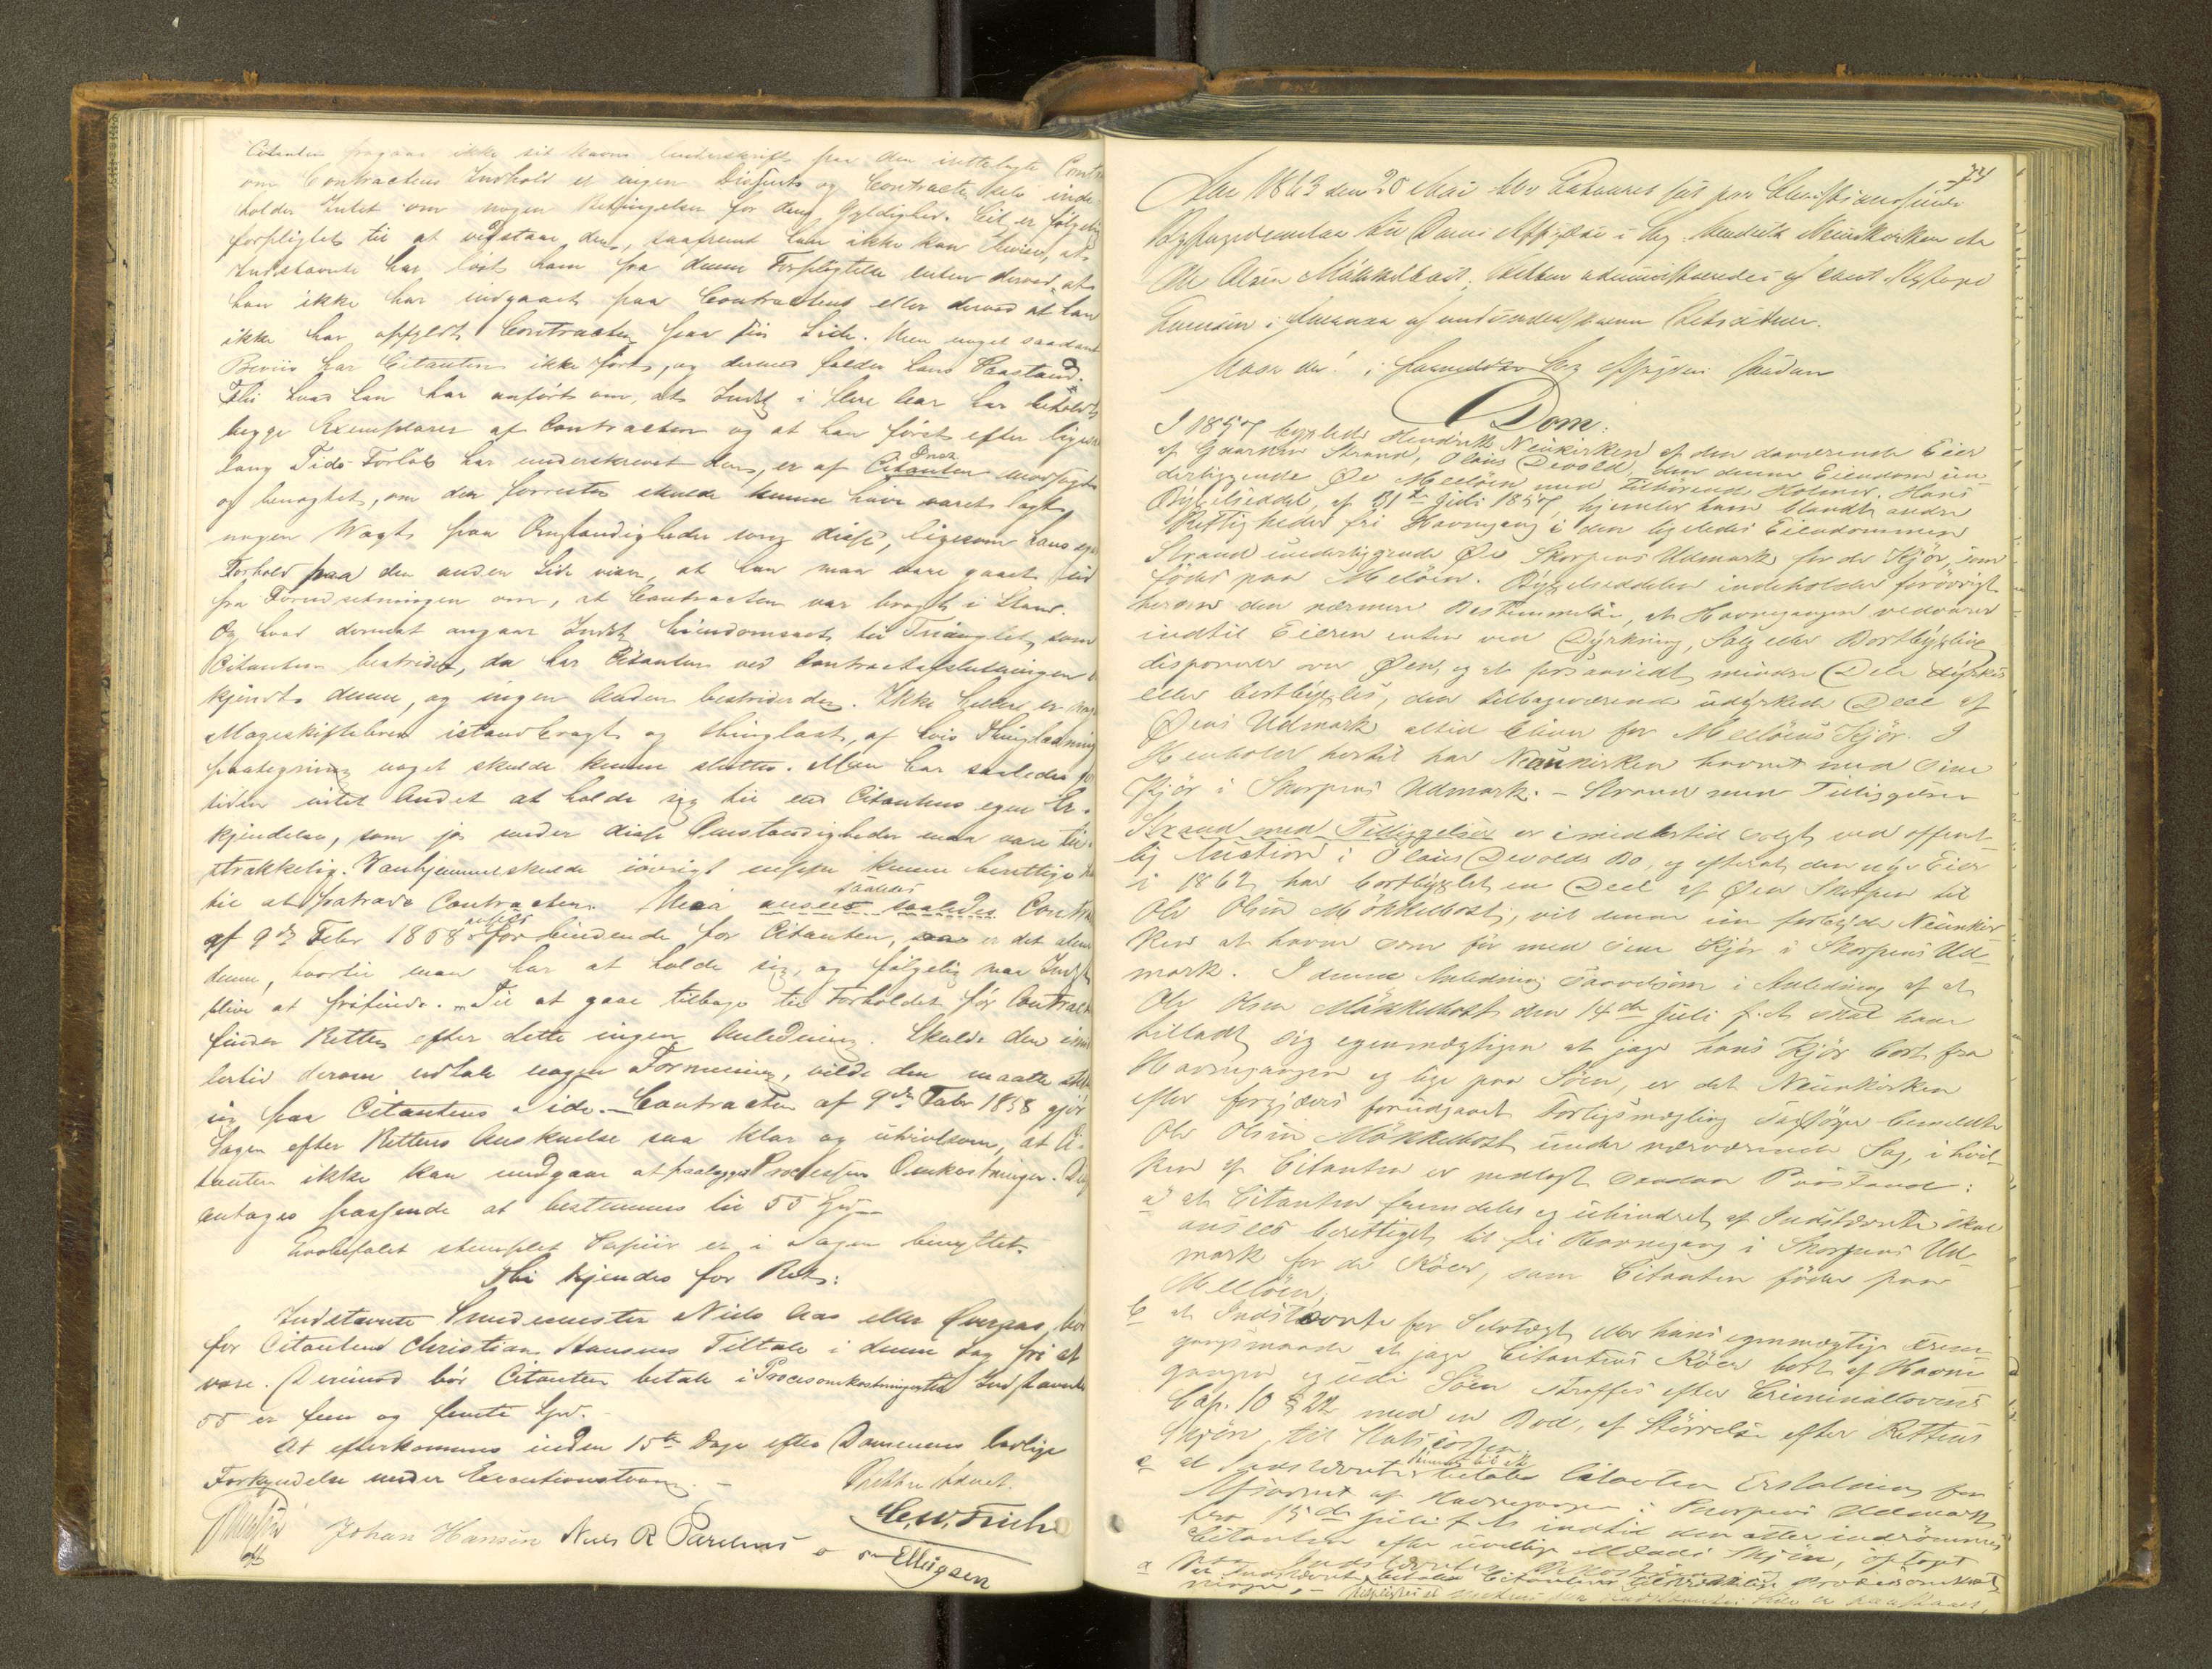 Citanten fragaar ikke sit Navns Underskrift paa den irettelagte Contra
om Contractens Indhold er ingen Dispute og Contracten selv inde-
holder Intet om nogen Betingelse for dens Gyldighed. Cit. er følgelig
forpligtet til at vedstaae den, saafremt han ikke kan bevise, at
Indstævnte har løst ham fra denne Forpligtelse enten derved, at
han ikke har indgaaet paa Contracten eller derved at han
ikke har opfyldt Contracten paa sin Side. Men noget saadant
Beviis har Citanten ikke ført, og dermed falder hans Paastand.
Thi hvad han har anført om, at Indst. i flere Aar har beholdt
begge Exemplarer af Contracten og at han først efter ligesaa
lang Tids Forløb har underskrevet den, er af Citanten modsagt
og benægtet, om der forresten skulde kunne have været lagt
nogen Vægt paa Omstændigheder som disse, ligesom hans eget
Forhold paa den anden Side viser, at han maa være gaaet ud
fra Forudsætningen om, at Contracten var bragt i Stand.
Og hvad dernæst angaar Indst. Eiendomsret til Trianglet, som
Citanten bestrider, da har Citanten ved Contractafslutningen
kjendt denne, og ingen Anden bestrider den. Ikke heller er
Mageskiftebrev istandbragt og thinglæst, af hvis Thinglæsnings
paategning noget skulde kunne sluttes. Man har saaledes
intet Andet at holde sig til end Citantens egen Er-
kjendelse, som jo under disse Omstændigheder maa være til-
strækkelig. Vanhjemmel skulde iøvrigt neppe kunne berettige
til at fratræde Contracten. Maa ansees saaledes Contra
af 9de Febr 1858 for bindende for Citanten, er det alene
denne, hvortil man har at holde sig, og følgelig maa Indst.
blive at frifinde. – Til at gaae tilbage til Forholdet før Contract
finder Retten efter dette ingen Anledning. Skulde den imid-
lertid derom udtale nogen Formening, vilde den maatte stille
sig paa Citantens Side. – Contracten af 9de Febr 1858 gjør
Sagen efter Rettens Anskuelse saa klar og utvivlsom, at Ci-
tanten ikke kan undgaae at paalægges Processens Omkostninger. De
antages passende at bestemmes til 55 Spd.
Lovbefalet stemplet Papiir er i Sagen benyttet.
Thi kjendes for Ret:
Indstævnte Smedemester Niels Aas eller bør
for Citantens Christian Hansens Tiltale i denne Sag fri at
være. Derimod bør Citanten betale i Procesomkostninger til Indstævnte
55 er fem og femti Spd.
At efterkommes inden 15ten Dage efter Dommens lovlige
Forkyndelse under Executionstvang. – Retten hævet.
C. W. Frich
Johan Hansen Niels R Parelius
Ellingsen
74
Aar 1863 den 20 Mai blev Extraret sat paa Christianssunds
i Sag Hendrik Neunkirken
Ole Olsen Mökkelbost; Retten administreredes af
Hvor da i Sag afsagdes saadan
Dom:
I 1857 bygslede Hendrik Neünkirken af den daværende Eier
af Gaarden Strand, Olaus Devold, den denne Eiendom un
derliggende Øe Meeløen med tilhørende Holmer. Hans
Bygselseddel, af 31te Juli 1857, hjemler ham blandt andre
Rettigheder fri Havnegang i den ligeledes Eiendommen
Strand underliggende Øe Skorpens Udmark for de Kjør, som
födes paa Meløen. Bygselseddelen indeholder forøvrigt
herom den nærmere Bestemmelse, at Havnegangen vedvarer
indtil Eieren enten ved Dyrkning, Salg eller Bortbygsling
disponerer over Øen, og at forsaavidt mindre Dele dyrkes
eller bortbygsles, den tilbageværende udyrkede Deel af
Øens Udmark altid bliver for Meeløens Kjør. I
Henhold hertil har Neünkirken havnet med sine
Kjør i Skorpens Udmark. – Strand med Tilliggelser
Strand med Tilliggelser er imidlertid solgt ved offent-
lig Auction i Olaus Devolds Bo, og efterat den nye Eier
i 1862 har bortbygslet en Deel af Øen Skorpen til
Ole Olsen Mökkelbost, vil denne nu forbyde Neünkir
ken at havne som før med sine Kjør i Skorpens Ud-
mark. I denne Anledning saavelsom i Anledning af at
Ole Olsen Mökkelbost den 14de Juli f. A. skal have
tilladt sig egenmægtigen at jage hans Kjør bort fra
Havnegangen og lige paa Søen, er det Neünkirken
efter forgjæves forudgaaet Forligsmægling sagsøger bemeldte
Ole Olsen Mökkelbost under nærværende Sag, i hvil-
ken af Citanten er nedlagt saadan Paastand:
a at Citanten fremdeles og uhindret af Indstævnte skal
ansees berettiget til fri Havnegang i Skorpens Ud-
mark for de Köer, som Citanten föder paa
Meeløen;
b at Indstævnte for Selvtægt eller hans egenmægtige Frem
gangsmaade at jage Citantens Köer bort af Havne
gangen og udi Søen straffes efter Criminallovens
Cap. 10 § 22 med en Bod, af Størrelse efter Rettens
Skjøn, til Statscassen.
c at Indstævnte betaler Citanten Erstatning for
Afsavnet af Havnegangen i Skorpens Udmark
fra 15de Juli f. A. indtil den atter indrømmes
Citanten efter uvillige Mænds Skjøn, optaget
paa Indstævntes Bekostning
d at Indstævnte betaler Citantens Procesomkost
ninger, –